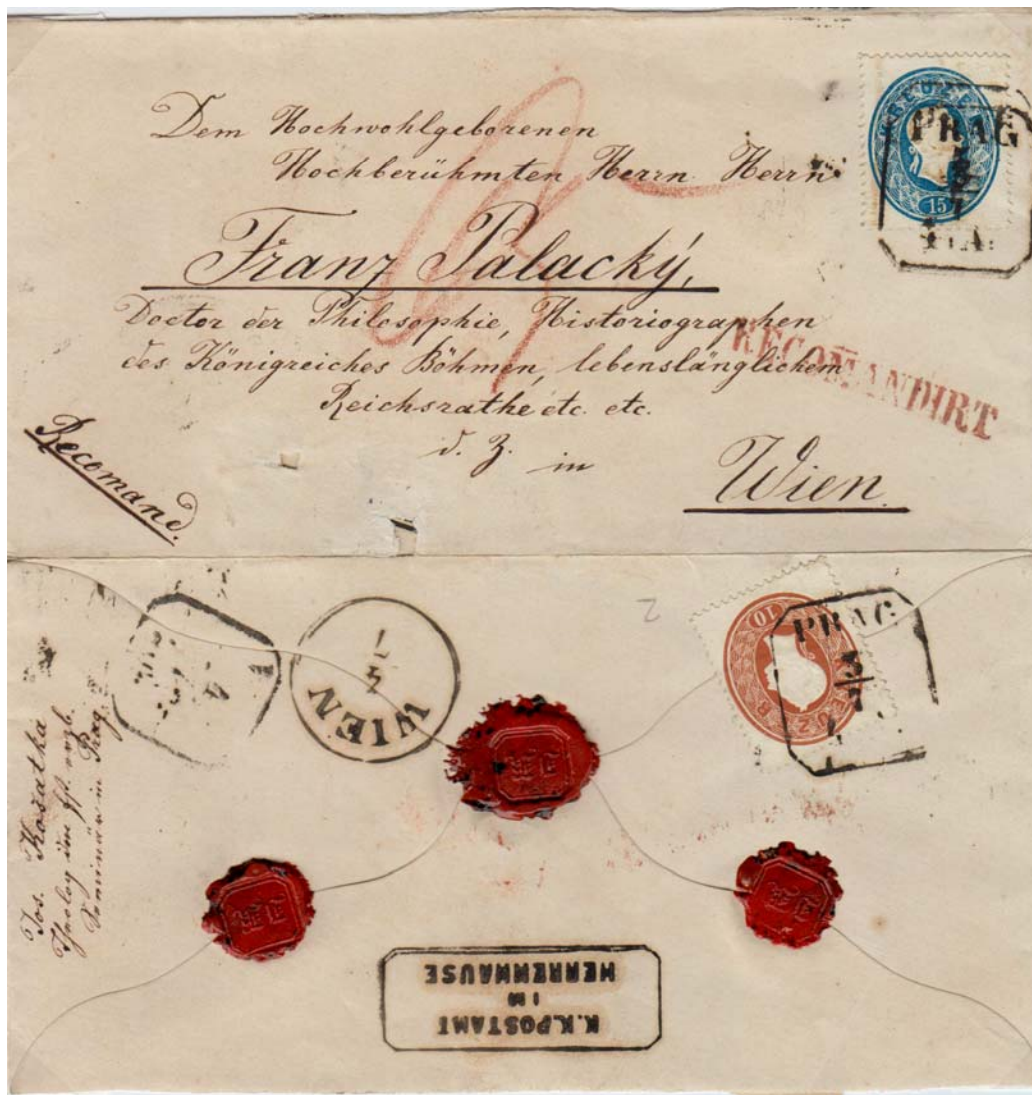 KREUZER
15
PRAG
Dem Hochwohlgeborenen
Hochberühmten Herrn Herrn
Franz Palacký,
Doctor der Philosophie, Historiographen
des Königreiches Böhmen, lebenslänglichem
Reichsrathe etc. etc.
d. Z. in
Wien.
RECOMANDIRT
Recomand.
WIEN
5
7
10
KREUZER
PRAG
Jos. Košatka
Theolog im
Seminär in Prag
K.K.POSTAMT
IM
HERRENHAUSE
2